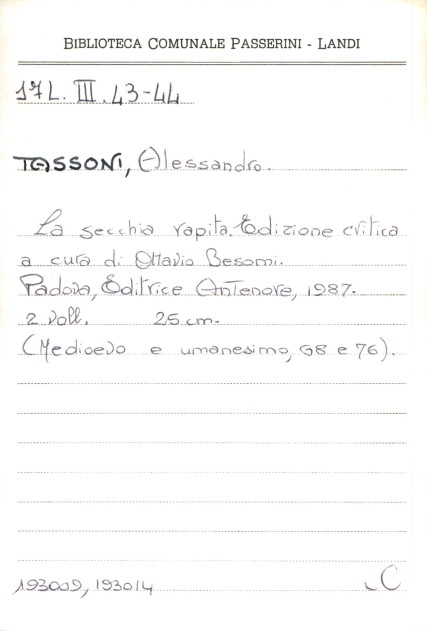 BIBLIOTECA COMUNALE PASSERINI - LANDI
17L. III. 43-44
TASSONI, Alessandro.
La secchia rapita. Edizione critica
a cura di Ottavio Besomi.
Padova, Editrice Antenore, 1987.
2 voll. 25 cm.
(Medioevo e umanesimo, 68 e 76).
193009, 193014
C